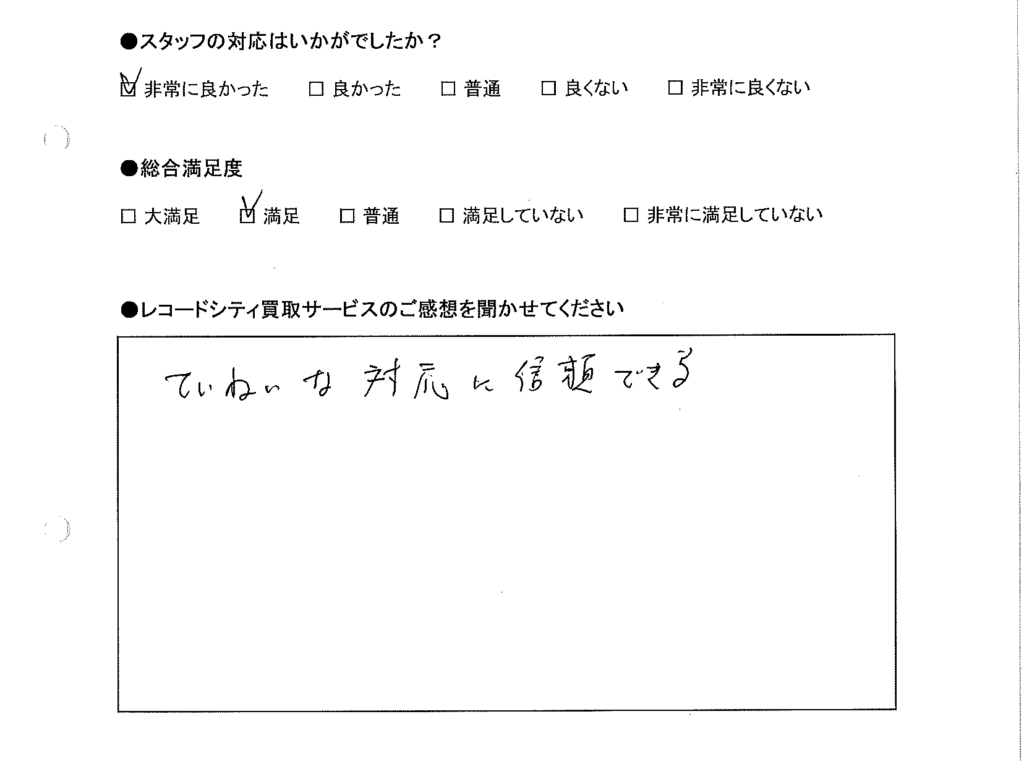 ●スタッフの対応はいかがでしたか？
☑ 非常に良かった □ 良かった □ 普通 □ 良くない □ 非常に良くない
●総合満足度
□ 大満足 ☑ 満足 □ 普通 □ 満足していない □ 非常に満足していない
●レコードシティ買取サービスのご感想を聞かせてください
ていねいな対応に信頼できる